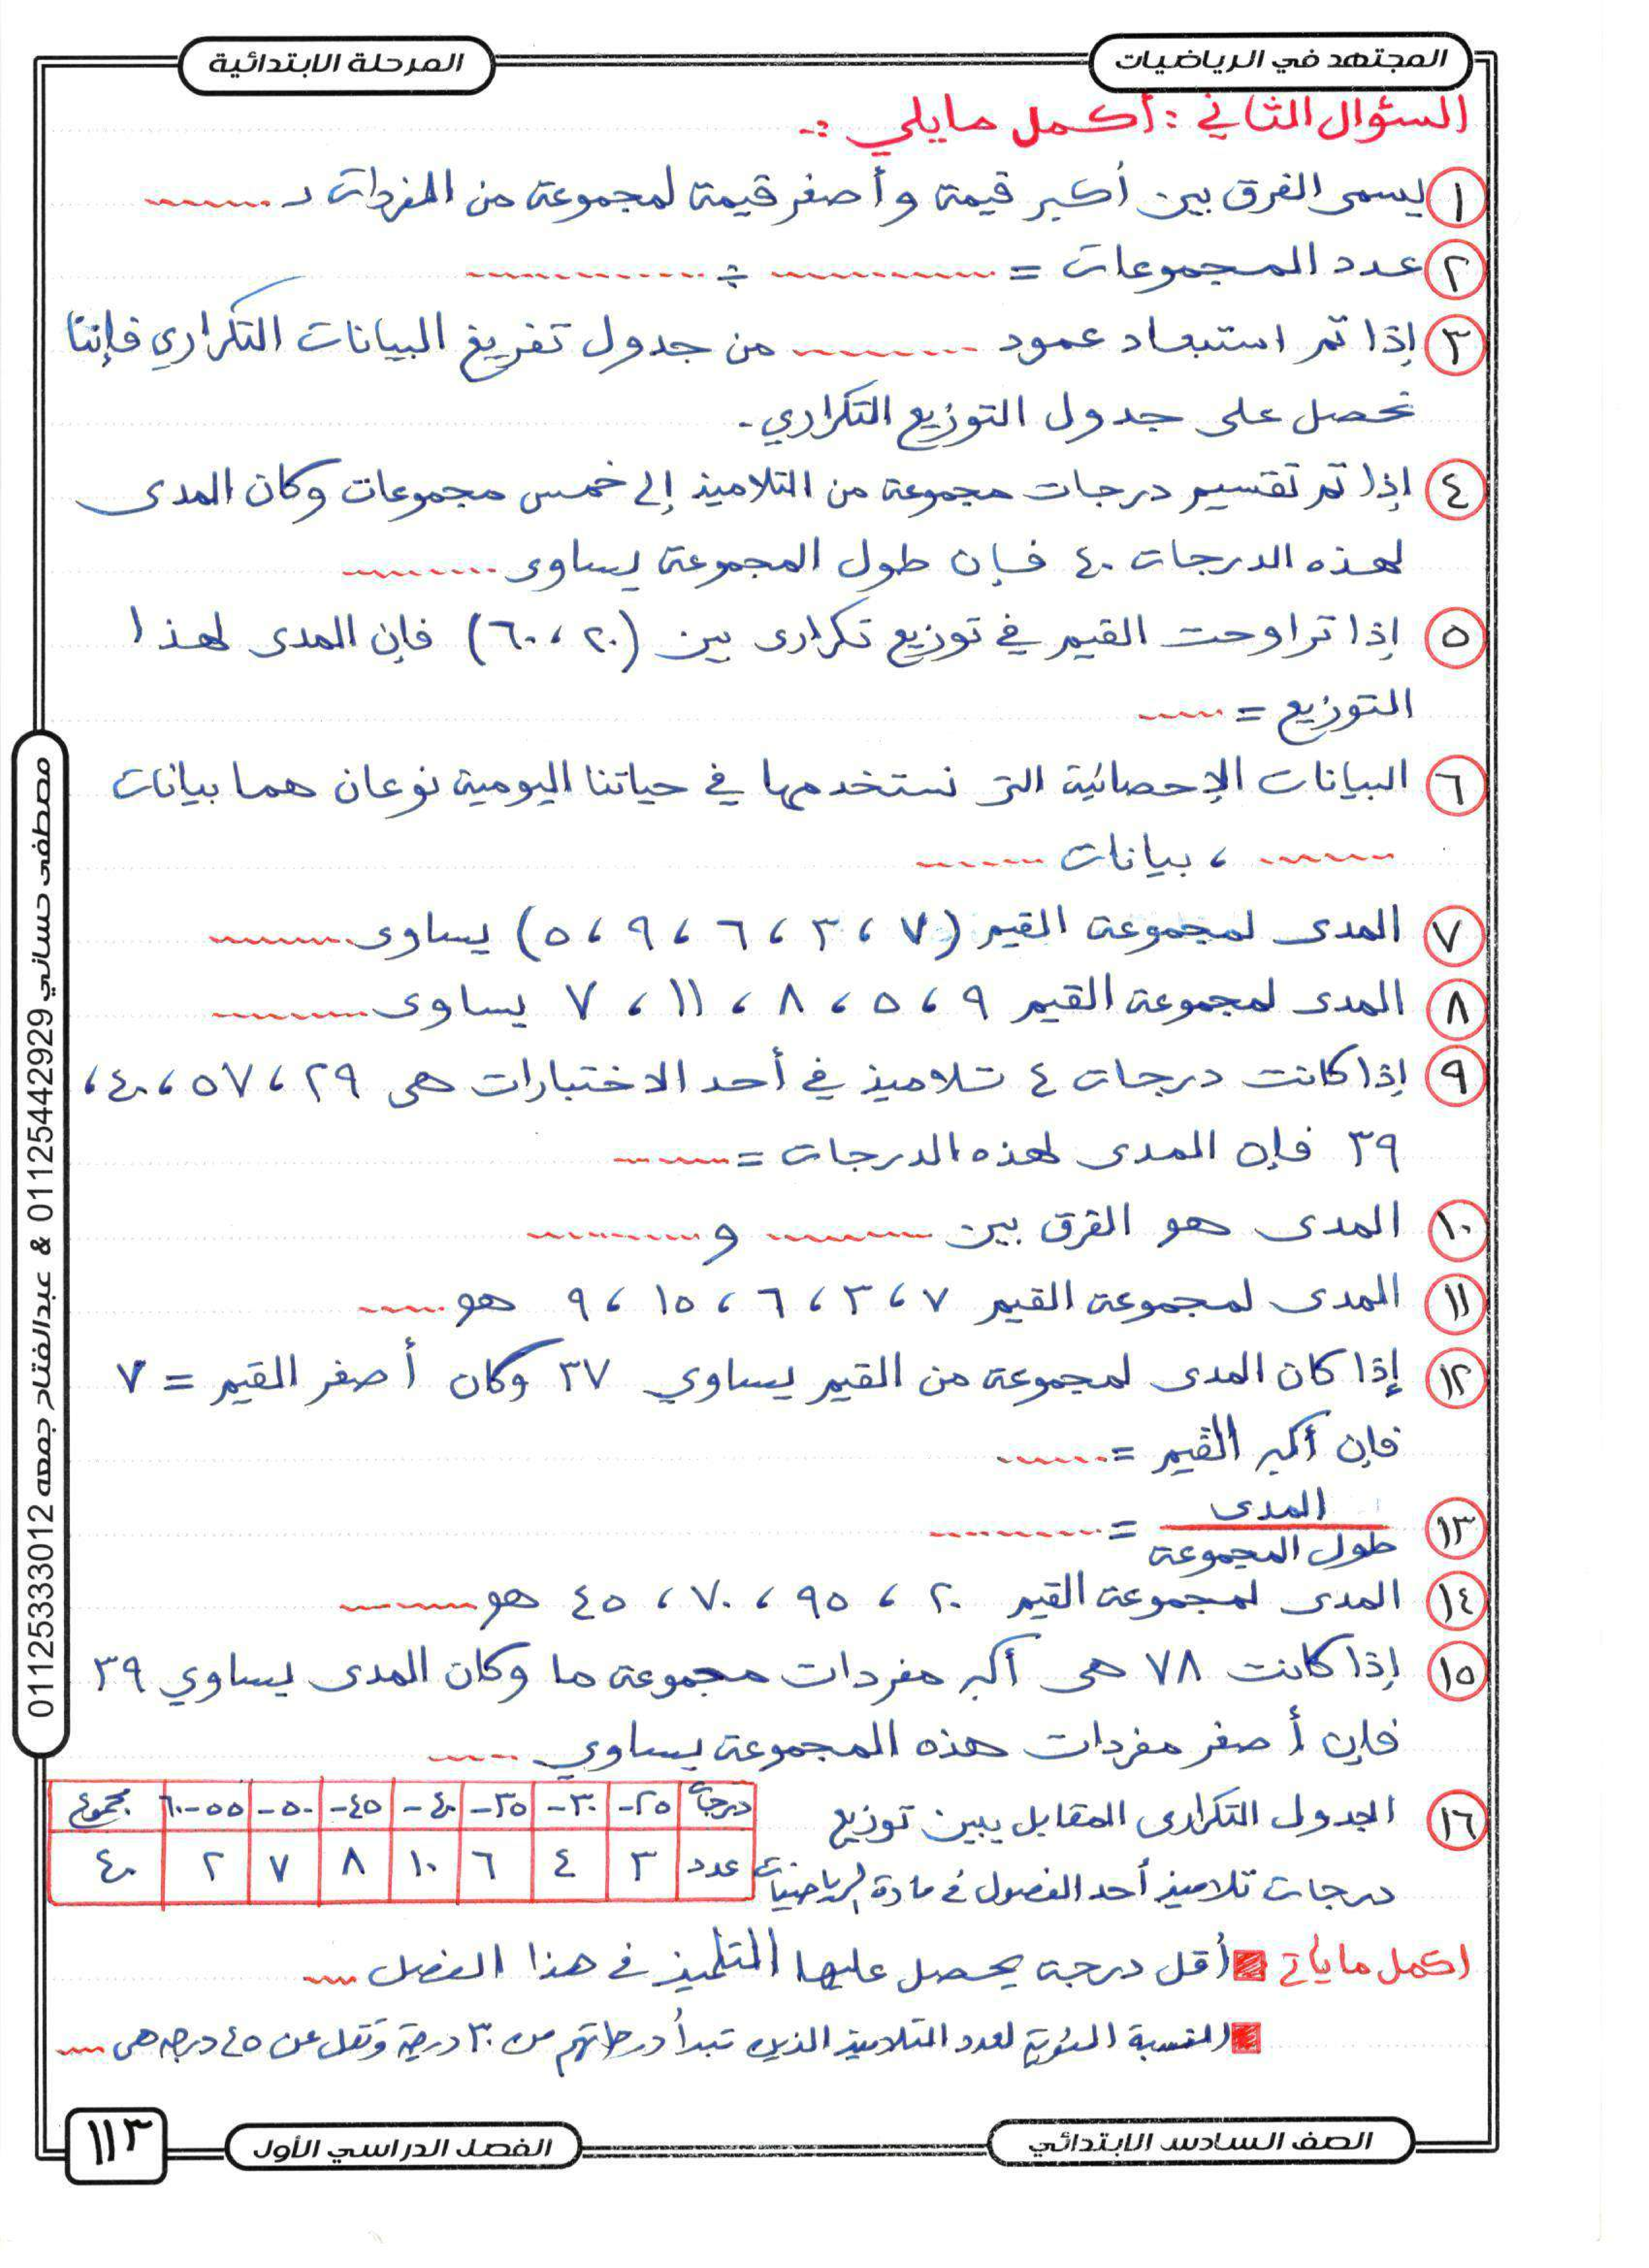 المجتهد في الرياضيات
المرحلة الابتدائية
السؤال الثاني : أكمل مايلي :-
١ يسمى الفرق بين أكبر قيمة وأصغر قيمة لمجموعة من المفردات بـ ........
٢ عدد المجموعات = ............ ÷ ............
٣ إذا تم استبعاد عمود .......... من جدول تفريغ البيانات التكراري فإننا
نحصل على جدول التوزيع التكراري .
٤ إذا تم تقسيم درجات مجموعة من التلاميذ إلى خمس مجموعات وكان المدى
لهذه الدرجات ٤٠ فإن طول المجموعة يساوى ........
٥ إذا تراوحت القيم في توزيع تكرارى بين (٢٠ ، ٦٠) فإن المدى لهذا
التوزيع = ......
٦ البيانات الإحصائية التى نستخدمها في حياتنا اليومية نوعان هما بيانات
........ ، بيانات ........
٧ المدى لمجموعة القيم (٧ ، ٣ ، ٦ ، ٩ ، ٥) يساوى ........
٨ المدى لمجموعة القيم ٩ ، ٥ ، ٨ ، ١١ ، ٧ يساوى ........
٩ إذا كانت درجات ٤ تلاميذ في أحد الاختبارات هى ٢٩ ، ٥٧ ، ٤٠ ،
٣٩ فإن المدى لهذه الدرجات = ........
١٠ المدى هو الفرق بين .......... و ..........
١١ المدى لمجموعة القيم ٧ ، ٣ ، ٦ ، ١٥ ، ٩ هو ......
١٢ إذا كان المدى لمجموعة من القيم يساوي ٣٧ وكان أصغر القيم = ٧
فإن أكبر القيم = .......
١٣ المدى
طول المجموعة = ..........
١٤ المدى لمجموعة القيم ٢٠ ، ٩٥ ، ٧٠ ، ٤٥ هو ........
١٥ إذا كانت ٧٨ هى أكبر مفردات مجموعة ما وكان المدى يساوي ٣٩
فإن أصغر مفردات هذه المجموعة يساوي .....
١٦ الجدول التكرارى المقابل يبين توزيع
درجات تلاميذ أحد الفصول في مادة الرياضيات
درجات ٢٥- ٣٠- ٣٥- ٤٠- ٤٥- ٥٠- ٥٥-٦٠ مجموع
عدد ٣ ٤ ٦ ١٠ ٨ ٧ ٢ ٤٠
اكمل ما يأتي أقل درجة يحصل عليها التلميذ في هذا الفصل ....
النسبة المئوية لعدد التلاميذ الذين تبدأ درجاتهم من ٣٠ درجة وتقل عن ٤٥ درجه هى ....
مصطفى حساني 01125442929 & عبدالفتاح جمعه 01125333012
الصف السادس الابتدائي
الفصل الدراسي الأول
١١٣